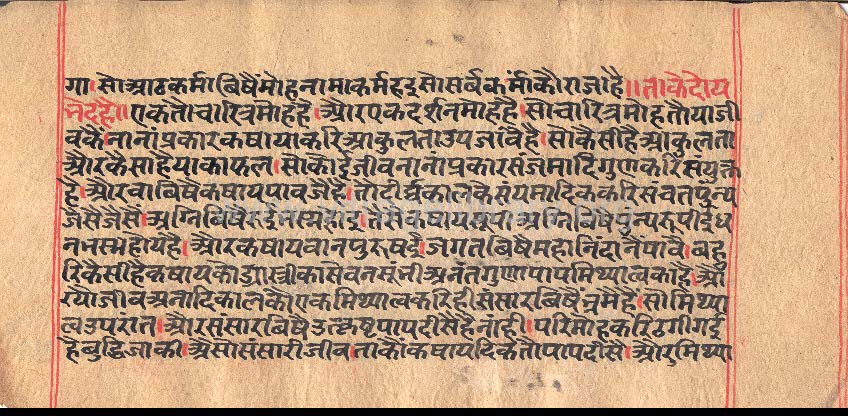 गा।सोआठकर्मबिषैंमोहनामाकर्महइसोसर्वकर्माकौराजाहै॥ताकेदोय
भेदहै॥एकतौचारित्रमोहहै।औरएकदर्शनमोहहै।सोचारित्रमोहतौयाजी
वकैंनानांप्रकारकषायाकरिआकुलताउपजांवैहै।सोकैसीहैआकुलता
औरकैसाहैयाकाफल।सोकोईजीवनानांप्रकारसंजमादिगुणकरिसंयुक्त
है।औरवाबिषैकषायपावजेहै।तोदीर्घकालकेसंयमादिककरिसंचतपुन्य
जैसेजैसैं।अग्निबिषै
ननस्महोयहै।औरकषायवानपुरुषहै।जगतबिषैमहानिंदानैंपावै।बहु
रिकैसीहैकषायकोडास्त्रीकासेवनसूंभीअनंतगुणापापमिथ्यात्वकाहै।औ
रयोजीवअनादिकालकौएकमिथ्यात्वकरिहीसंसारबिषैंभ्रमैहै।सोमिथ्या
त्वउपरांत।औरसंसारबिषैउत्कृष्टपापदीसैहैनाही।परिमोहकरिठगीगई
हैबुद्धिजाकी।औसोसंसारीजीव।ताकौंकषायदिकतौपापदीसै।औरुमिथ्या